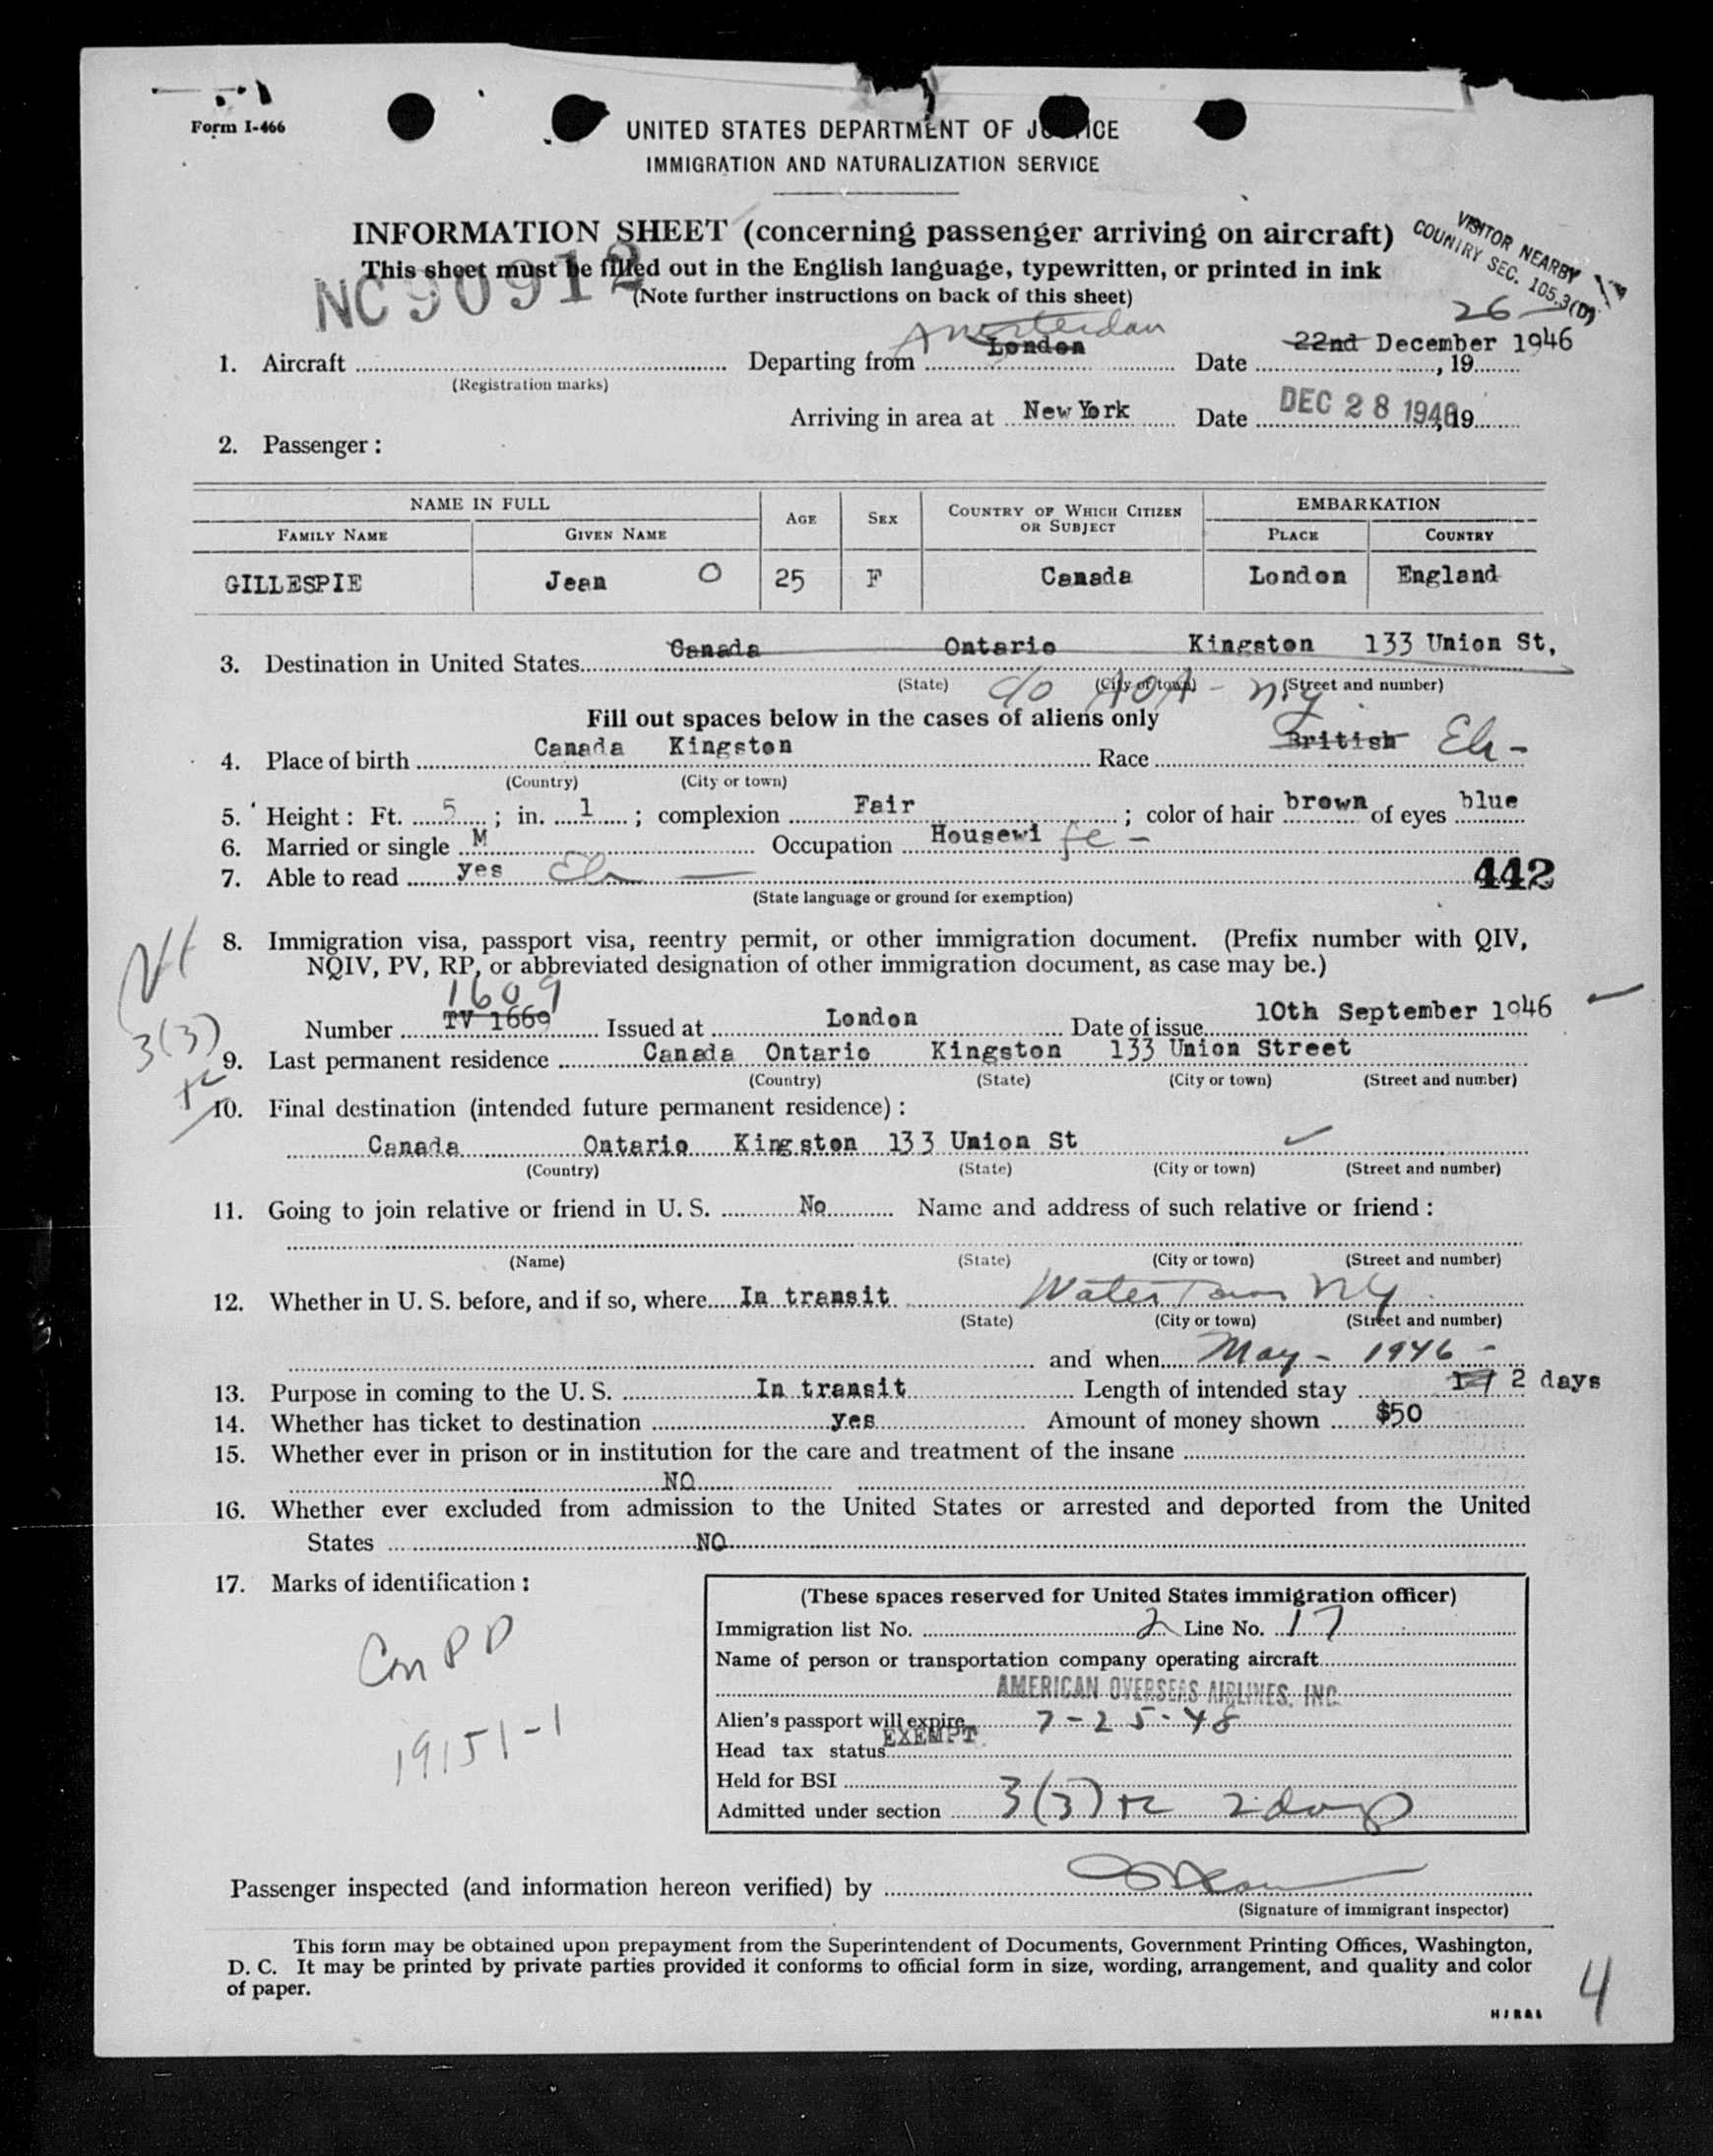 Form I-466
UNITED STATES DEPARTMENT OF JUSTICE
IMMIGRATION AND NATURALIZATION SERVICE
INFORMATION SHEET (concerning passenger arriving on aircraft)
VISITOR NEARBY
COUNTRY SEC. 105.3(D)
This sheet must be filled out in the English language, typewritten, or printed in ink
NC90912
(Note further instructions on back of this sheet)
Amsterdam 26
1. Aircraft Departing from London Date 22nd December 1946, 19
(Registration marks)
Arriving in area at New York Date DEC 28 1946, 19
2. Passenger:
NAME IN FULL AGE SEX COUNTRY OF WHICH CITIZEN OR SUBJECT EMBARKATION
FAMILY NAME GIVEN NAME PLACE COUNTRY
GILLESPIE Jean O 25 F Canada London England
3. Destination in United States Canada Ontario Kingston 133 Union St,
(State) (City or town) (Street and number)
c/o AOA - NY
Fill out spaces below in the cases of aliens only
4. Place of birth Canada Kingston Race British
(Country) (City or town)
5. Height: Ft. 5; in. 1; complexion Fair; color of hair brown of eyes blue
6. Married or single M Occupation Housewife -
7. Able to read yes 442
(State language or ground for exemption)
8. Immigration visa, passport visa, reentry permit, or other immigration document. (Prefix number with QIV,
NQIV, PV, RP, or abbreviated designation of other immigration document, as case may be.)
1609
Number TV 1669 Issued at London Date of issue 10th September 1946
3(3)
9. Last permanent residence Canada Ontario Kingston 133 Union Street
(Country) (State) (City or town) (Street and number)
10. Final destination (intended future permanent residence):
Canada Ontario Kingston 133 Union St
(Country) (State) (City or town) (Street and number)
11. Going to join relative or friend in U. S. No Name and address of such relative or friend:
(Name) (State) (City or town) (Street and number)
12. Whether in U. S. before, and if so, where In transit Watertown NY
(State) (City or town) (Street and number)
and when May - 1946 -
13. Purpose in coming to the U. S. In transit Length of intended stay 2 days
14. Whether has ticket to destination yes Amount of money shown $50
15. Whether ever in prison or in institution for the care and treatment of the insane
NO
16. Whether ever excluded from admission to the United States or arrested and deported from the United
States NO
17. Marks of identification:
Can PP
19151-1
(These spaces reserved for United States immigration officer)
Immigration list No. 2 Line No. 17
Name of person or transportation company operating aircraft
AMERICAN OVERSEAS AIRLINES, INC.
Alien's passport will expire 7-25-48
Head tax status EXEMPT
Held for BSI
Admitted under section 3(3) 2 days
Passenger inspected (and information hereon verified) by
(Signature of immigrant inspector)
This form may be obtained upon prepayment from the Superintendent of Documents, Government Printing Offices, Washington,
D. C. It may be printed by private parties provided it conforms to official form in size, wording, arrangement, and quality and color
of paper.
4